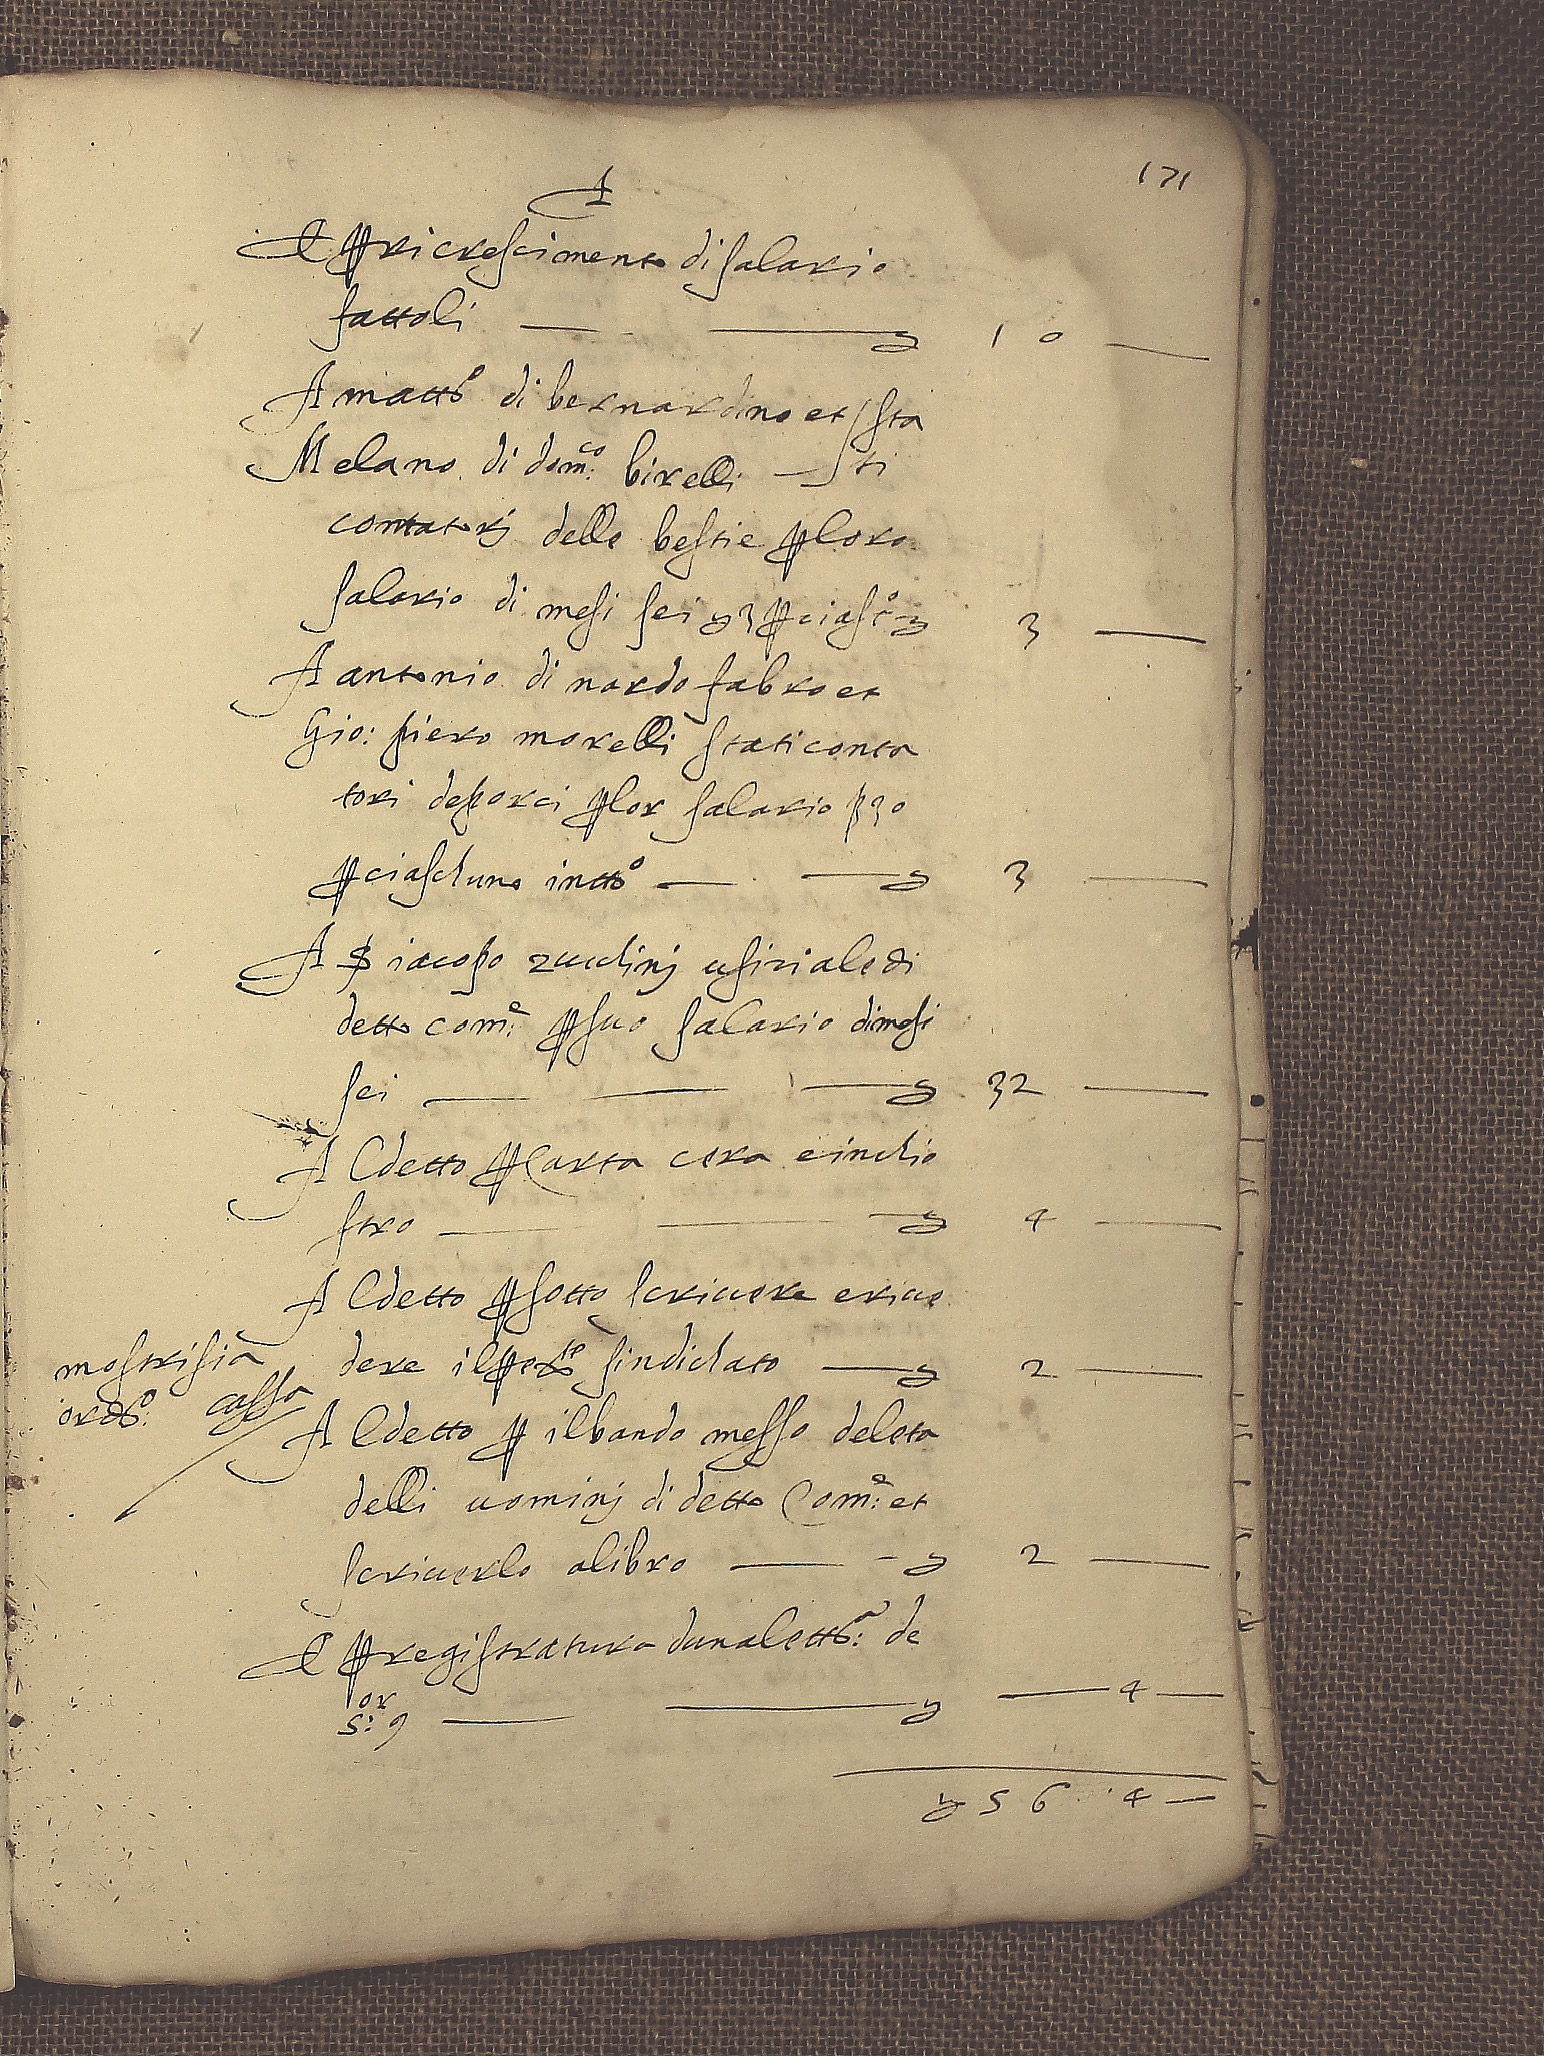 171
A
E ꝑ ricrescimento di salario
fattoli — — ℔ 10 —
A matt.º di bernardino et / sta
Melano di dom.co birelli — / ti
contatorj delle bestie ꝑ loro
salario di mesi sei ℔ 3 ꝑ ciasc.º ℔ 3 —
A antonio di nardo fabro et
Gio: piero morelli stati conta
tori de porci ꝑ lor salario
ꝑ ciaschuno in tt.º — — ℔ 3 —
A S iacopo zuchinj ufiziale di
detto com.e ꝑ suo salario di mesi
sei — — — ℔ 32 —
Al detto ꝑ Carta cera e inchio
stro — — — ℔ 4 —
Al detto ꝑ sotto scrivere e rive
mostrisi la
dere il sindichato — ℔ 2 —
cassa
Al detto ꝑ il bando messo
delli uominj di detto Com.e et
scriverlo a libro — - ℔ 2 —
E ꝑ registratura duna lett.ra: de
S.or: 9 — — ℔ — 4 —
℔ 56 . 4 —